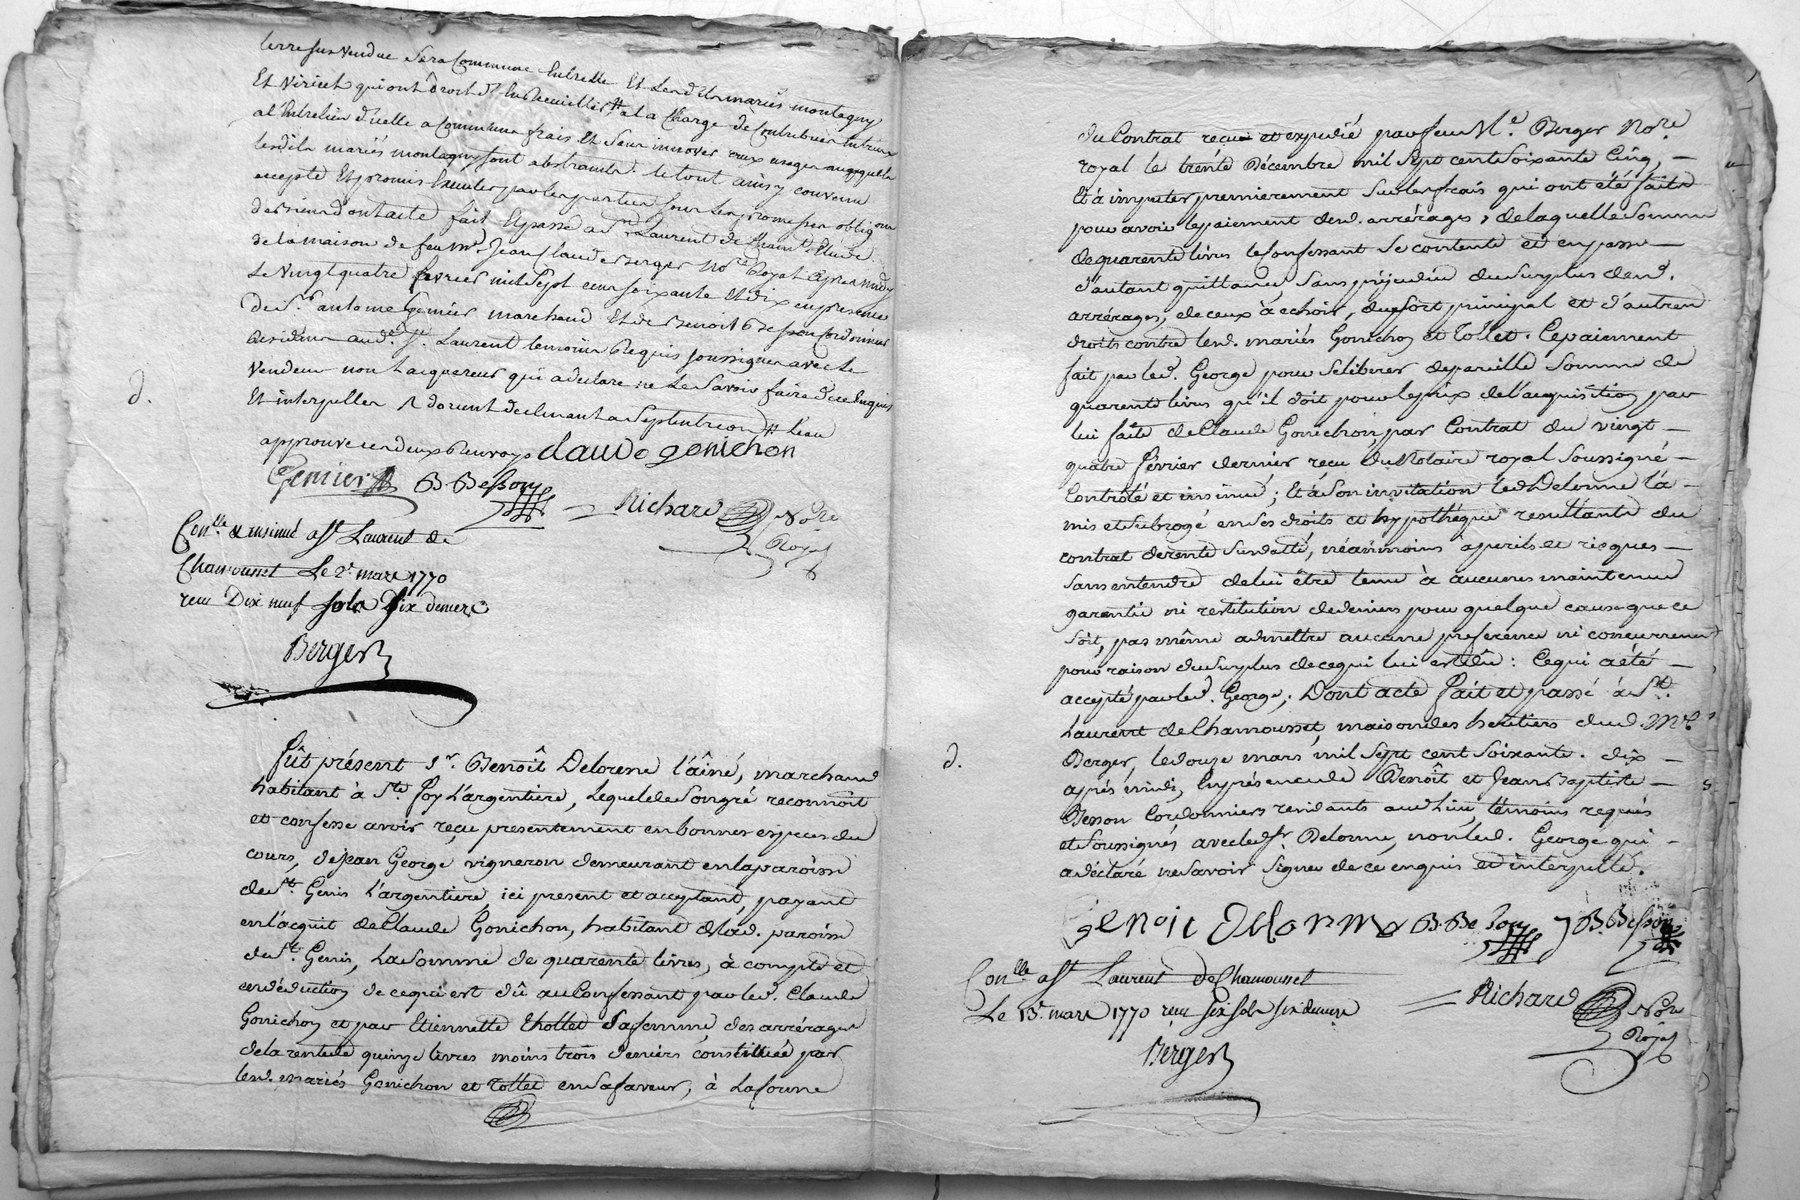 terre sus vendue sera Commune Entre elle Et Lesdits mariés montagny
Et Viricel qui ont droit d'En Recueillir # a la Charge de Contribuer Entreux
a l'Entretien d'icelle a Commune frais Et sans innover aux usages auxquels
lesdits mariés montagny sont abstraints. le tout ainsy convenu
accepté Et promis Executer par les parties sous Les promesses obligaons
de st Laurent de
de la maison de feu me Jean Claude Berger Nore Royal Apres midy
Le Vingt quatre fevrier mil Sept cent soixante Et dix en presence
De Sr antoine Grenier marchand Et de Benoit Besson Cordonnier
Residens aud. St. Laurent temoins Requis soussignes avec le
Vendeur non L'acquereur qui a declaré ne Le Savoir faire de ce Enquis
Et interpellés
approuve
claude gonichon
Grenier B. Besson Richard Nore Royal
Conlle & insinué a St Laurent de
Chamousset Le 2e mars 1770
recu Dix neuf sols Six deniers
Berger
d.
Fût présent Sr. Benoît Delorme l'âiné, marchand
habitant à Ste. Foy L'argentiere, Lequel de Son gré reconnoit
et confesse avoir reçu présentement en bonnes especes du
cours, de Jean George vigneron demeurant en la paroisse
de St. Genis L'argentiere, ici present et acceptant, payant
en l'acquit de Claude Gonichon, habitant de lad. paroisse
de St. Genis, La somme de quarente livres, à compte et
en déduction de ce qui est dû au Confessant par led. Claude
Gonichon et par Etiennette thollet Sa femme des arrérages
de la rente de quinze livres moins trois deniers constituée par
lesd. mariés Gonichon et Tollet en Sa faveur, à La forme
du Contrat reçu et expedié par feu Me. Berger Nore
royal le trente Décembre mil Sept cent Soixante Cinq, —
Et à imputer premierement Sur les frais qui ont été faits
pour avoir le paiement desd. arrérages, de laquelle Somme
de quarente livres le Confessant Se contente et en passe —
d'autant quittance Sans préjudice du Surplus desd.
arrérages, de ceux à échoir, du Sort principal et d'autres
droits contre lesd. mariés Gonichon et Tollet. Ce paiement
fait par led. George pour Se liberer de pareille Somme de
quarente livres qu'il doit pour le prix de l'acquisition par
lui faite de Claude Gonichon par Contrat du vingt —
quatre février dernier reçu du Notaire royal Soussigné —
Controlé et insinué; Et à Son invitation led Delorme l'a —
mis et Subrogé en Ses droits et hypothéque resultants du
contrat de rente Surdatté, néanmoins à perils et risques —
Sans entendre de lui être tenu à aucunes maintenue
garentie ni restitution de deniers pour quelque cause que ce
Soit, pas même admettre aucune preference ni concurrence
pour raison du Surplus de ce qui lui est dû: Ce qui a été —
accepté par led. George. Dont acte fait et passé à St.
Laurent de Chamousset, maison des heritiers dud. Me.
Berger, le douze mars mil Sept cent Soixante. dix —
après midi, En présence de Benoît et Jean Baptiste —
Besson Cordonniers residents aud Lieu, témoins requis
et Soussignés avec led Sr. Delorme, non led. George qui —
a déclaré ne Savoir Signer de ce enquis et interpellé.
d.
Benoit Delorme B. Besson J B. Besson
Conlle a St Laurent de Chamousset
Le 13e mars 1770 recu six sols six deniers
Richard Nore Royal
Berger